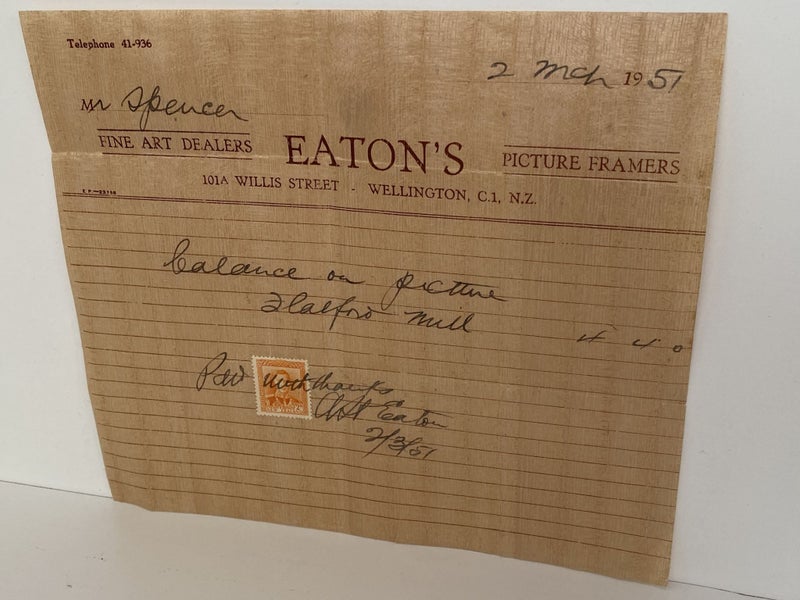 Telephone 41-936
2 Mch 1951
Mr Spencer
FINE ART DEALERS EATON'S PICTURE FRAMERS
101A WILLIS STREET - WELLINGTON, C.1, N.Z.
balance on picture
Flatford Mill 4 4 0
Paid with thanks
Eaton
2/3/51